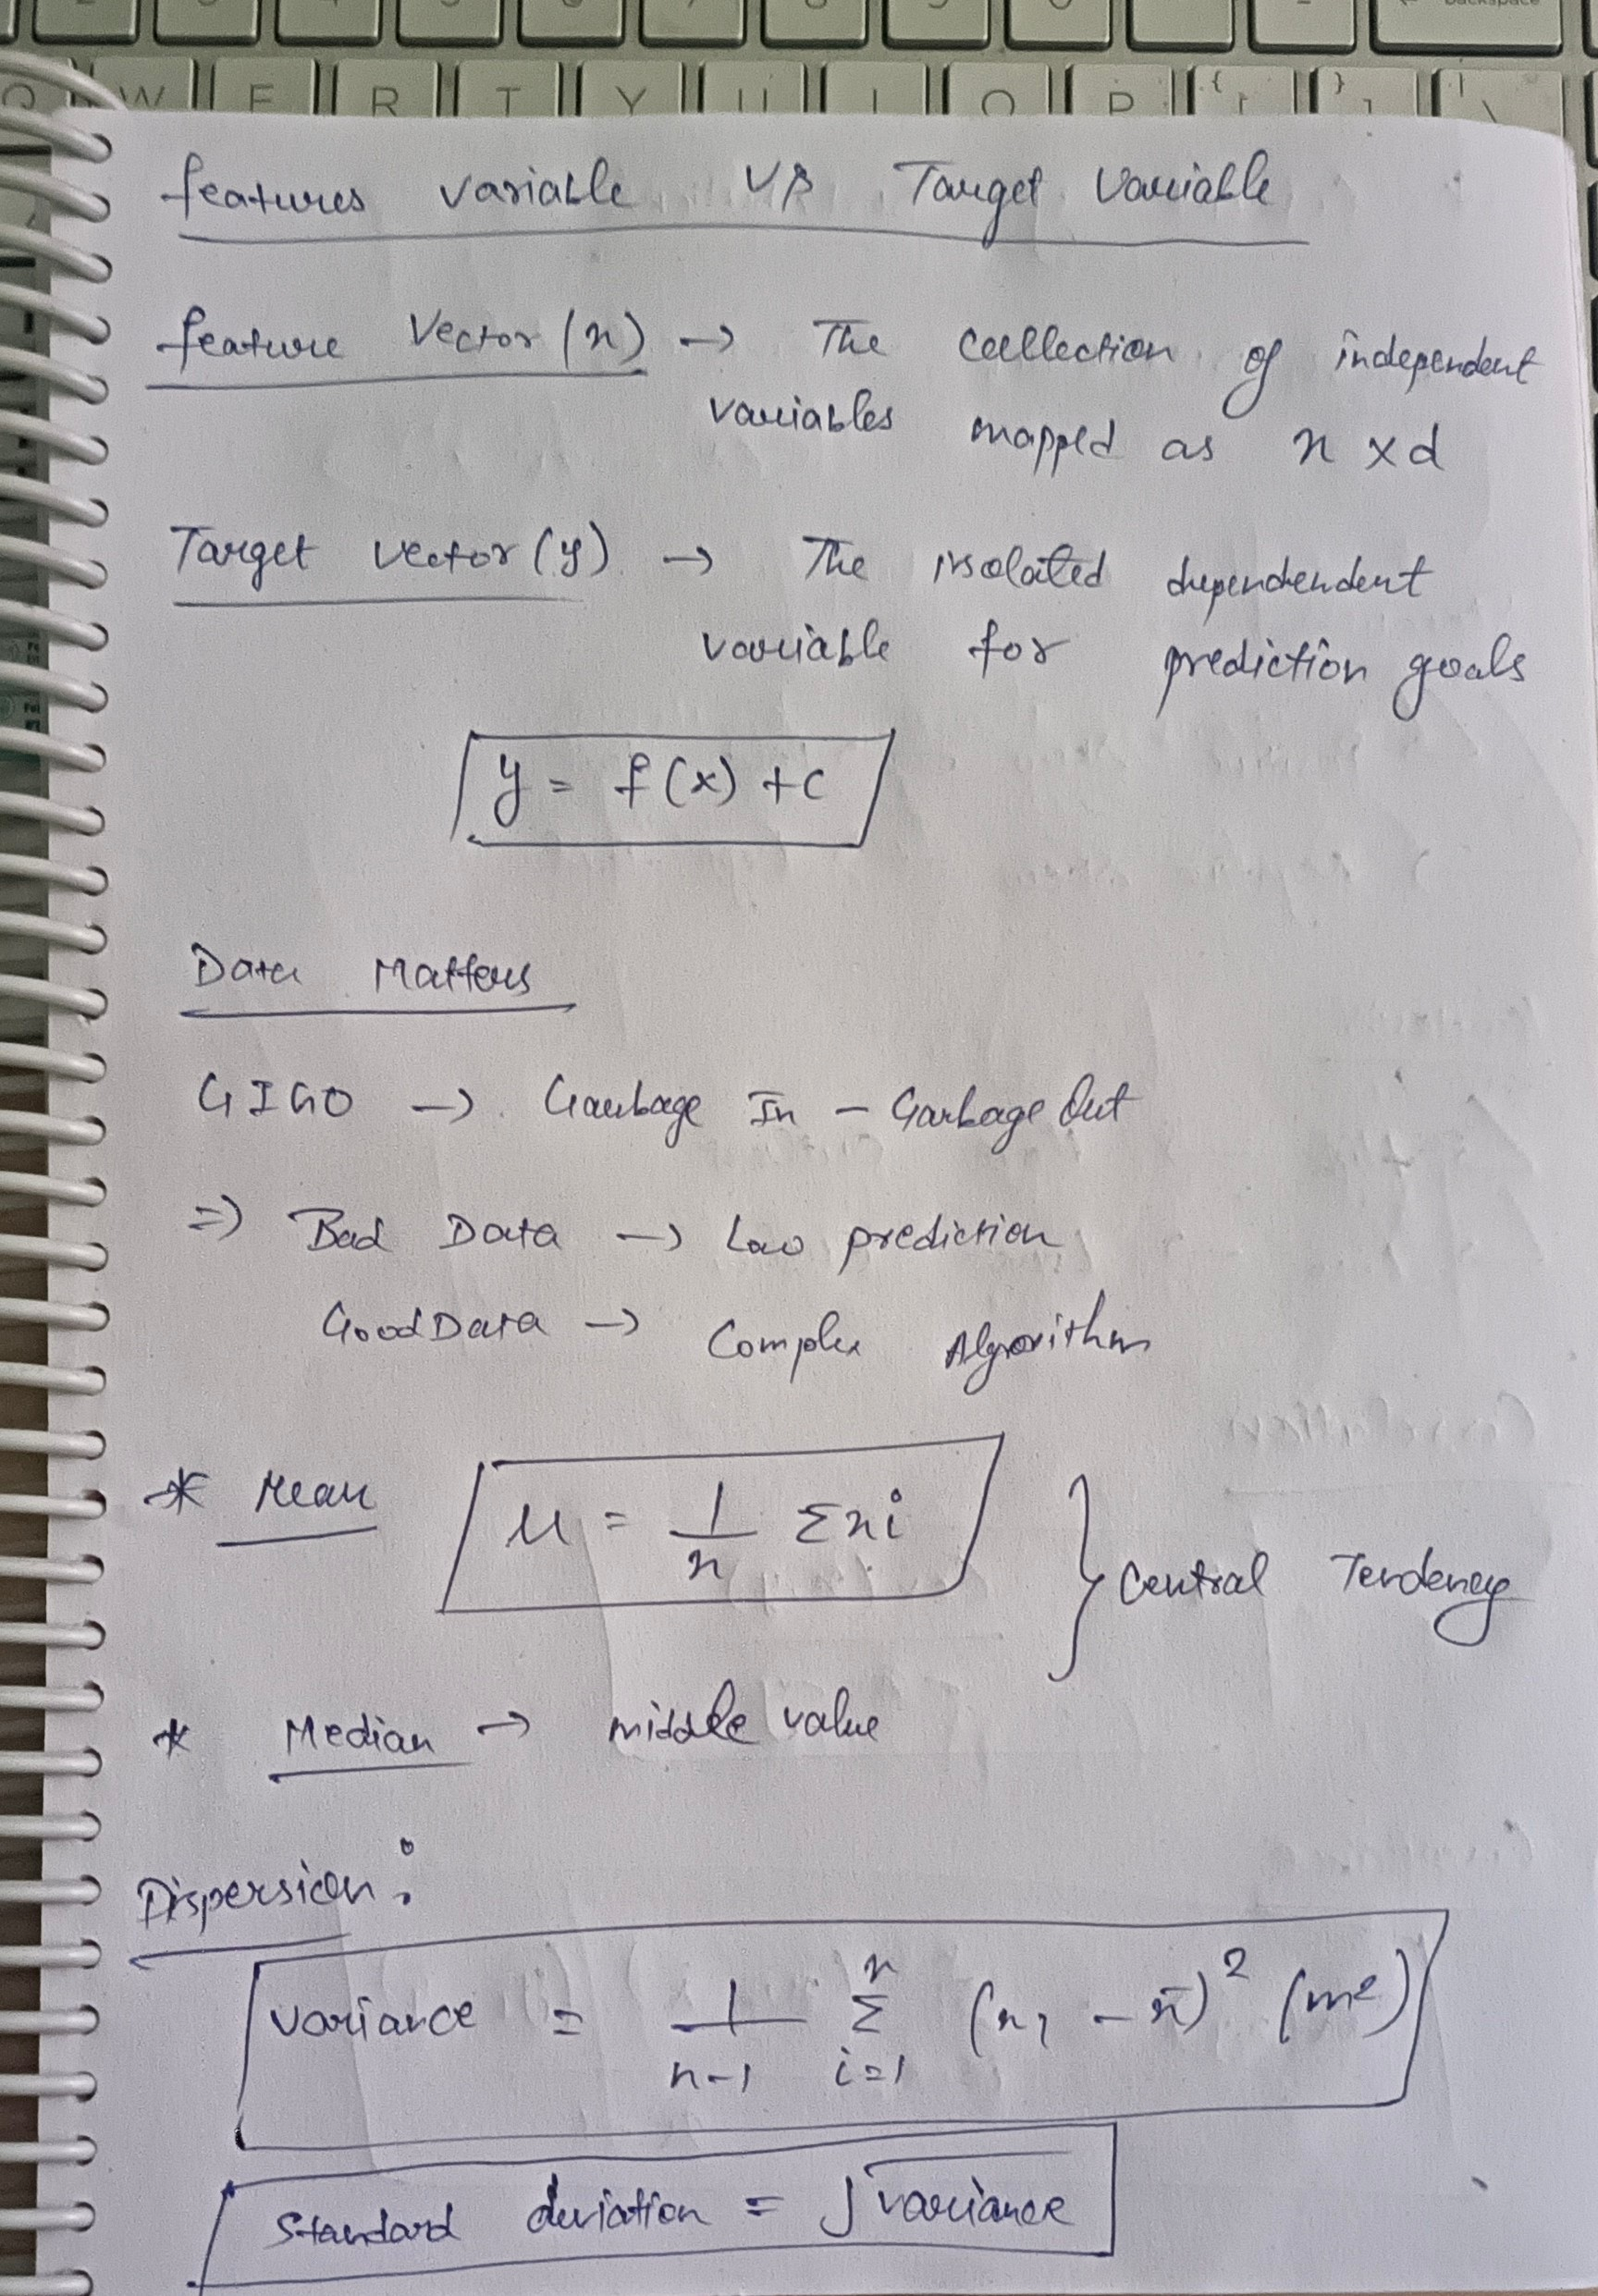 W E R T Y U I O P { [ } ] | \
backspace
features variable VS Target Variable
feature Vector (x) → The collection of independent
variables mapped as n x d
Target vector (y) → The isolated dependendent
variable for prediction goals
y = f(x) + c
Data Matters
GIGO → Garbage In - Garbage Out
⇒ Bad Data → Low prediction
Good Data → Complex Algorithm
* Mean μ = 1/n Σxi } Central Tendency
* Median → middle value
Dispersion:
variance = 1/n-1 Σ n i=1 (x1 - x̄)² (m²)
Standard deviation = √variance